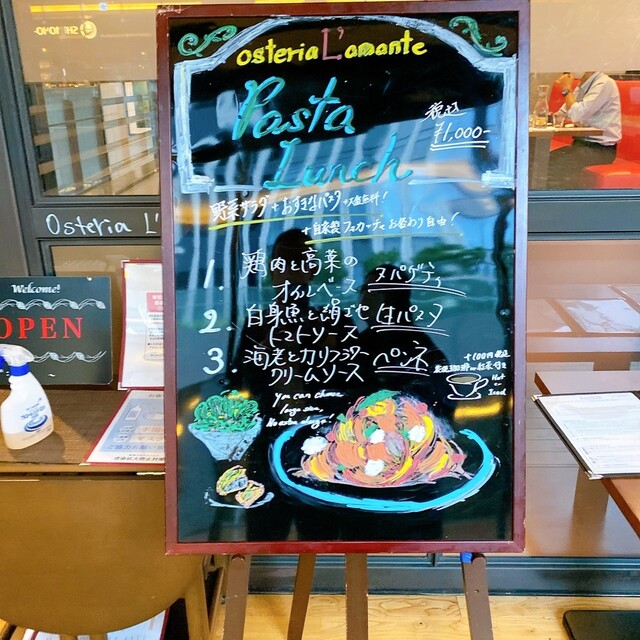 osteria L'amante
Pasta
Lunch
税込
¥1,000-
野菜サラダ+お好きなパスタ
+自家製フォカッチャお替わり自由!
1. 鶏肉と高菜の
オイルベース スパゲティ
2. 白身魚と絹ごせ
トマトソース 生パスタ
3. 海老とカリフラワー
クリームソース ペンネ
+100円税込
Hot
or
Iced
You can choose
large size.
No extra charge!
Osteria L'
Welcome!
OPEN